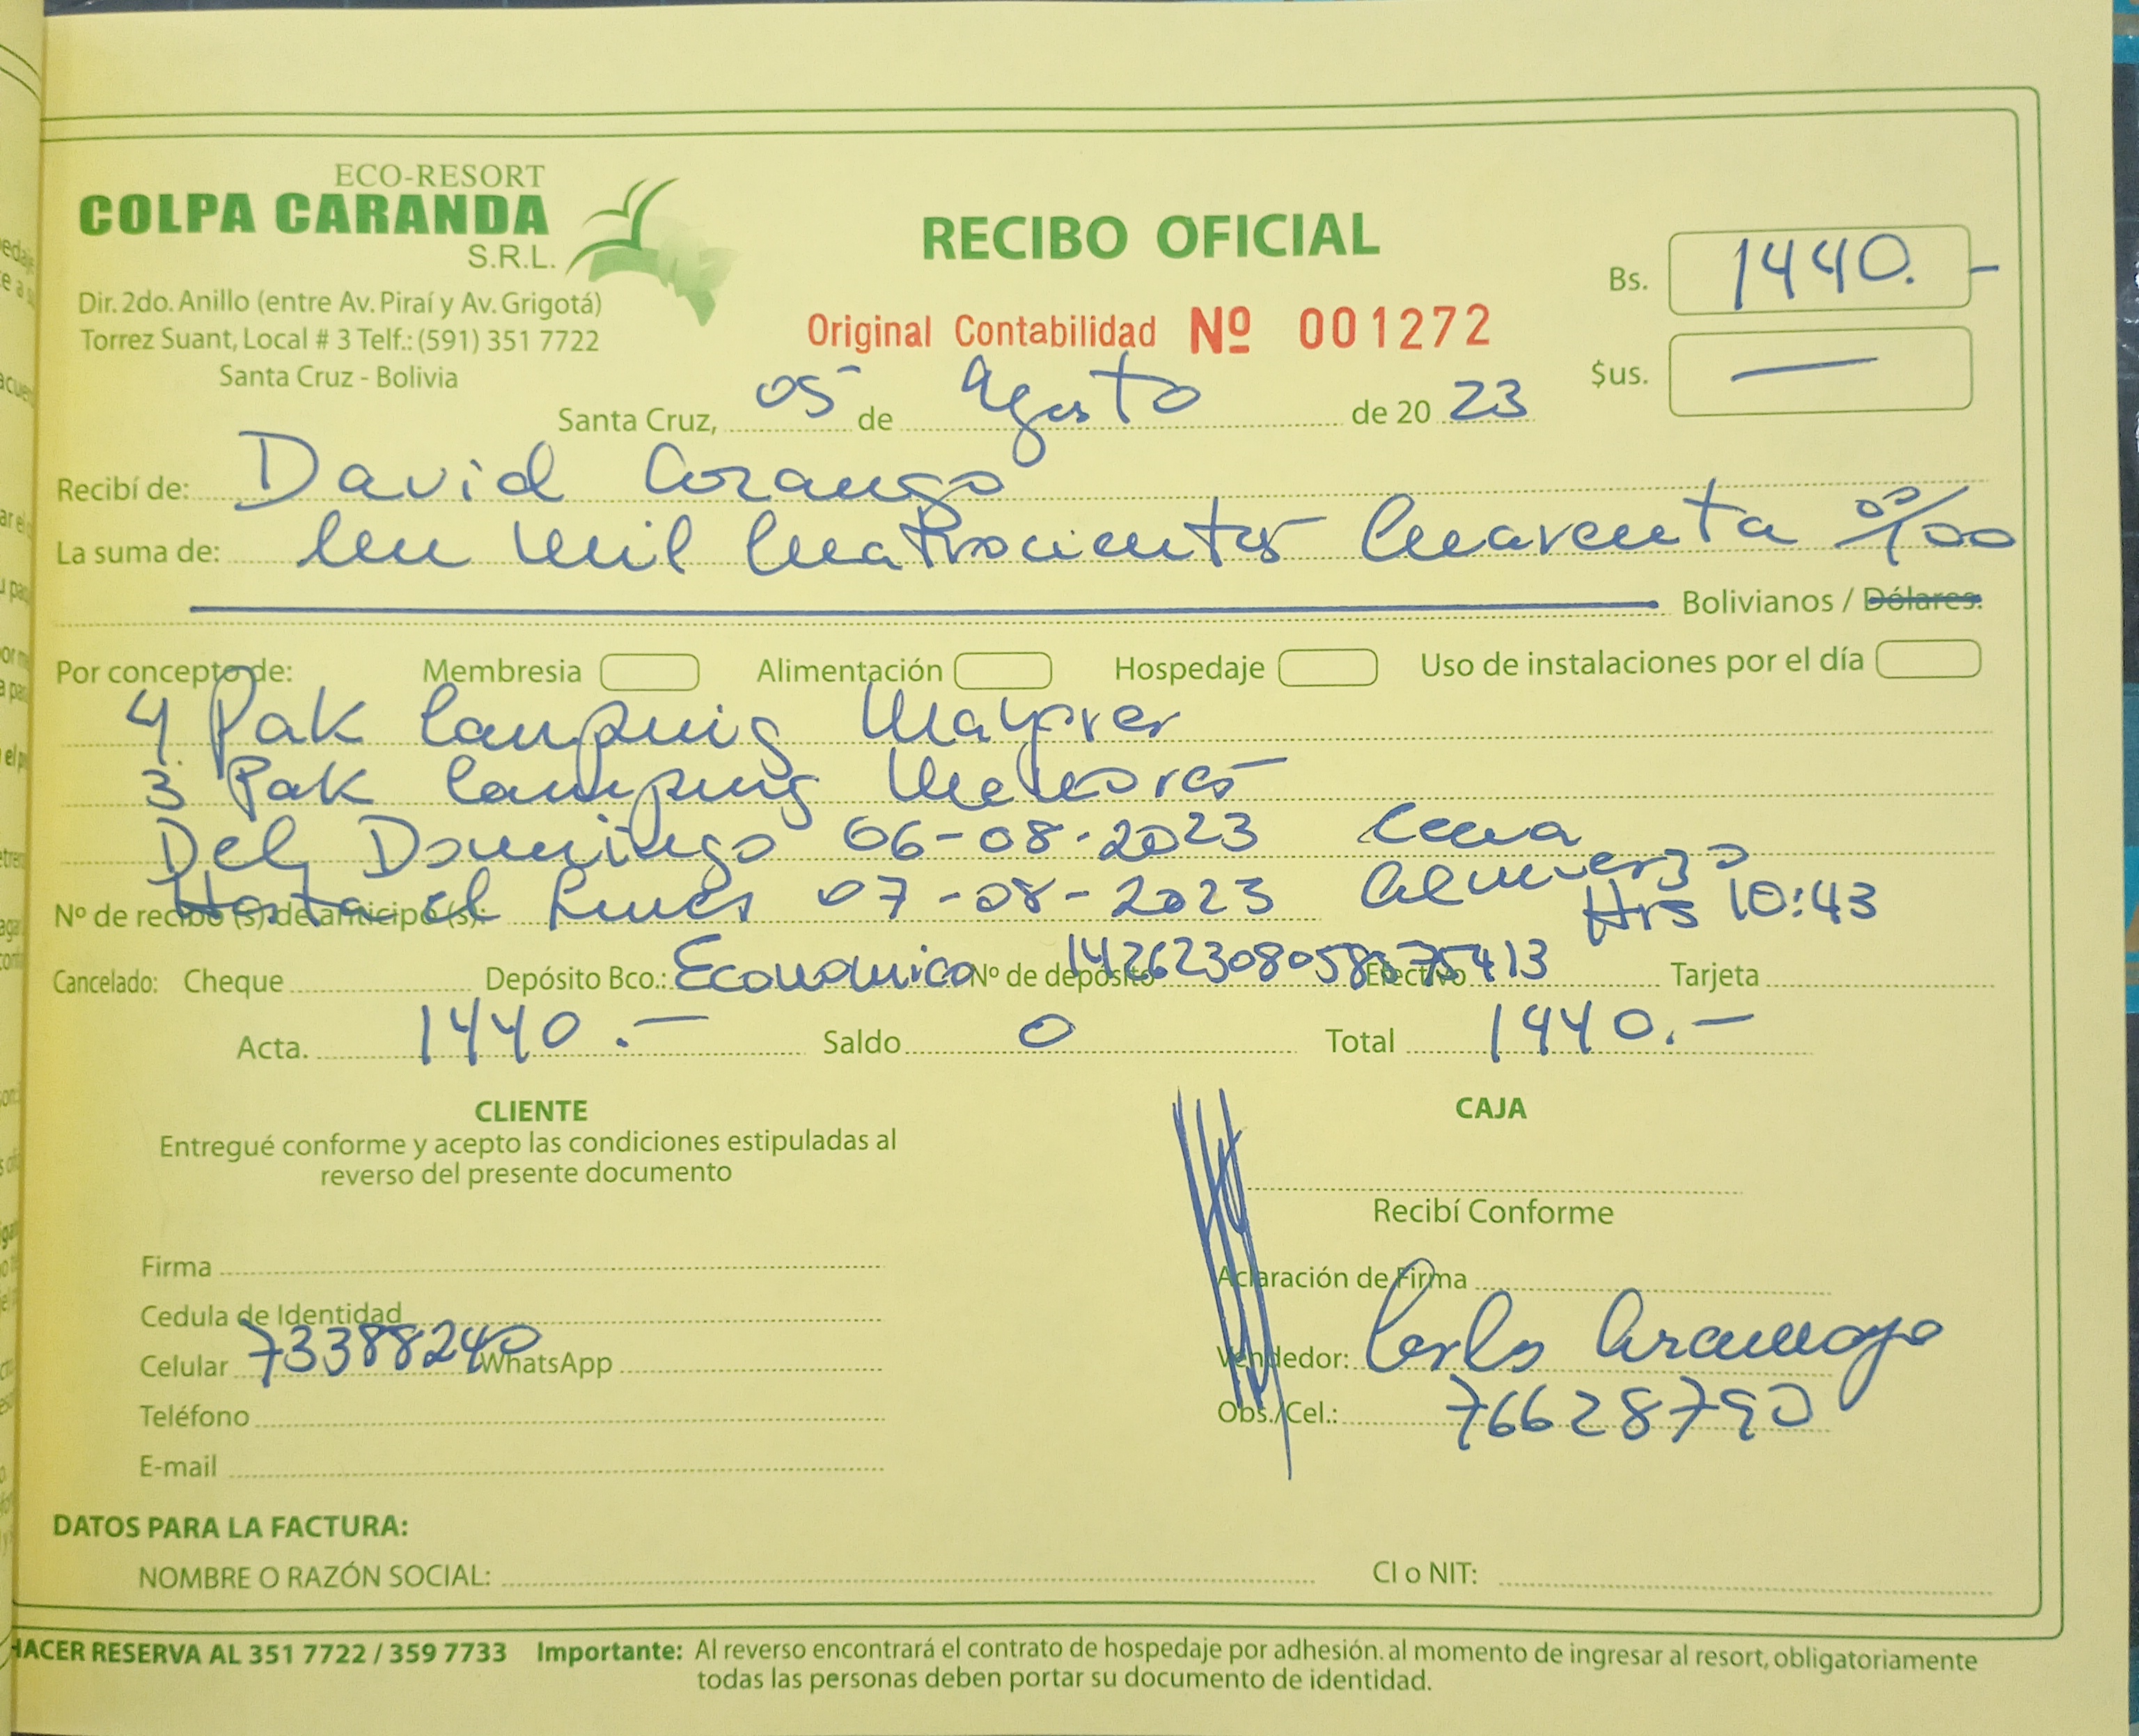 ECO-RESORT
COLPA CARANDA
S.R.L.
Dir. 2do. Anillo (entre Av. Piraí y Av. Grigotá)
Torrez Suant, Local # 3 Telf.: (591) 351 7722
Santa Cruz - Bolivia
RECIBO OFICIAL
Original Contabilidad Nº 001272
Bs. 1440.-
$us. —
Santa Cruz, 05 de Agosto de 20 23
Recibí de: David
La suma de: Un mil Cuatrocientos Cuarenta 00/100
Bolivianos / Dólares.
Por concepto de: Membresia Alimentación Hospedaje Uso de instalaciones por el día
4 Pak Camping Mayores
3 Pak Camping Menores
Del Domingo 06-08-2023 Cena
Hasta el Lunes 07-08-2023 Almuerzo
Hrs 10:43
Nº de recibo (s) de anticipo (s):
Cancelado: Cheque Depósito Bco.: Economico Nº de depósito Efectivo Tarjeta
Acta. 1440.- Saldo 0 Total 1440.-
CLIENTE
Entregué conforme y acepto las condiciones estipuladas al
reverso del presente documento
Firma
Cedula de Identidad
Celular 73388240 WhatsApp
Teléfono
E-mail
CAJA
Recibí Conforme
Aclaración de Firma
Vendedor: Carlos Aramayo
Obs./Cel.: 76628790
DATOS PARA LA FACTURA:
NOMBRE O RAZÓN SOCIAL: CI o NIT:
HACER RESERVA AL 351 7722 / 359 7733 Importante: Al reverso encontrará el contrato de hospedaje por adhesión. al momento de ingresar al resort, obligatoriamente
todas las personas deben portar su documento de identidad.